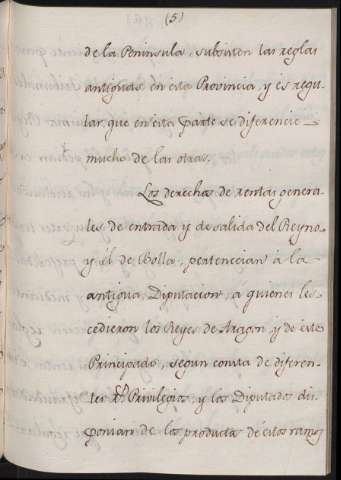 (5)
de la Peninsula, subsisten las reglas
antiguas en esta Provincia, y es regu-
lar que en esta parte se diferencie
mucho de las otras.
Los derechos de rentas genera-
les de entrada y de salida del Reyno
y él de Bolla, pertenecian á la
antigua Diputacion, á quienes le
cedieron los Reyes de Aragon, y de este
Principado, segun consta de diferen-
tes Rs. Privilegios; y los Diputados dis-
ponian de los productos de estos ramos